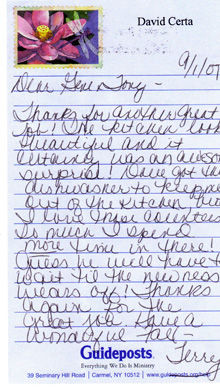 David Certa
9/1/07
Dear Gene & Tony -
Thanks for another great
job! The kitchen looks
beautiful and it
certainly was an awesome
surprise! Dave got the
dishwasher to keep me
out of the kitchen but
I love those counters
so much I spend
more time in there! I
guess he will have to
wait til the newness
wears off! Thanks
again for the
great job. Have a
wonderful fall -
Terry
Guideposts
Everything We Do Is Ministry
39 Seminary Hill Road | Carmel, NY 10512 | www.guideposts.org